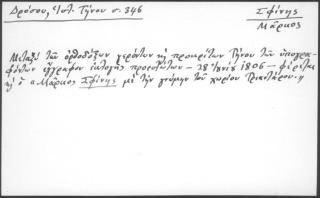 Δρόσου, Ἱστ. Τήνου σ. 346
Σφίνης
Μάρκος
Μεταξὺ τῶν ὀρθοδόξων γερόντων κ̀ προκρίτων Τήνου τῶν ὑπογρα-
φόντων ἔγγραφον ἐκλογῆς προεστώτων – 28 Ἰουνίου 1806 – φέρεται
κ̀ ὁ "Μάρκος Σφίνης μὲ τὴν γνώμην τοῦ χωρίου Τριαντάρου."